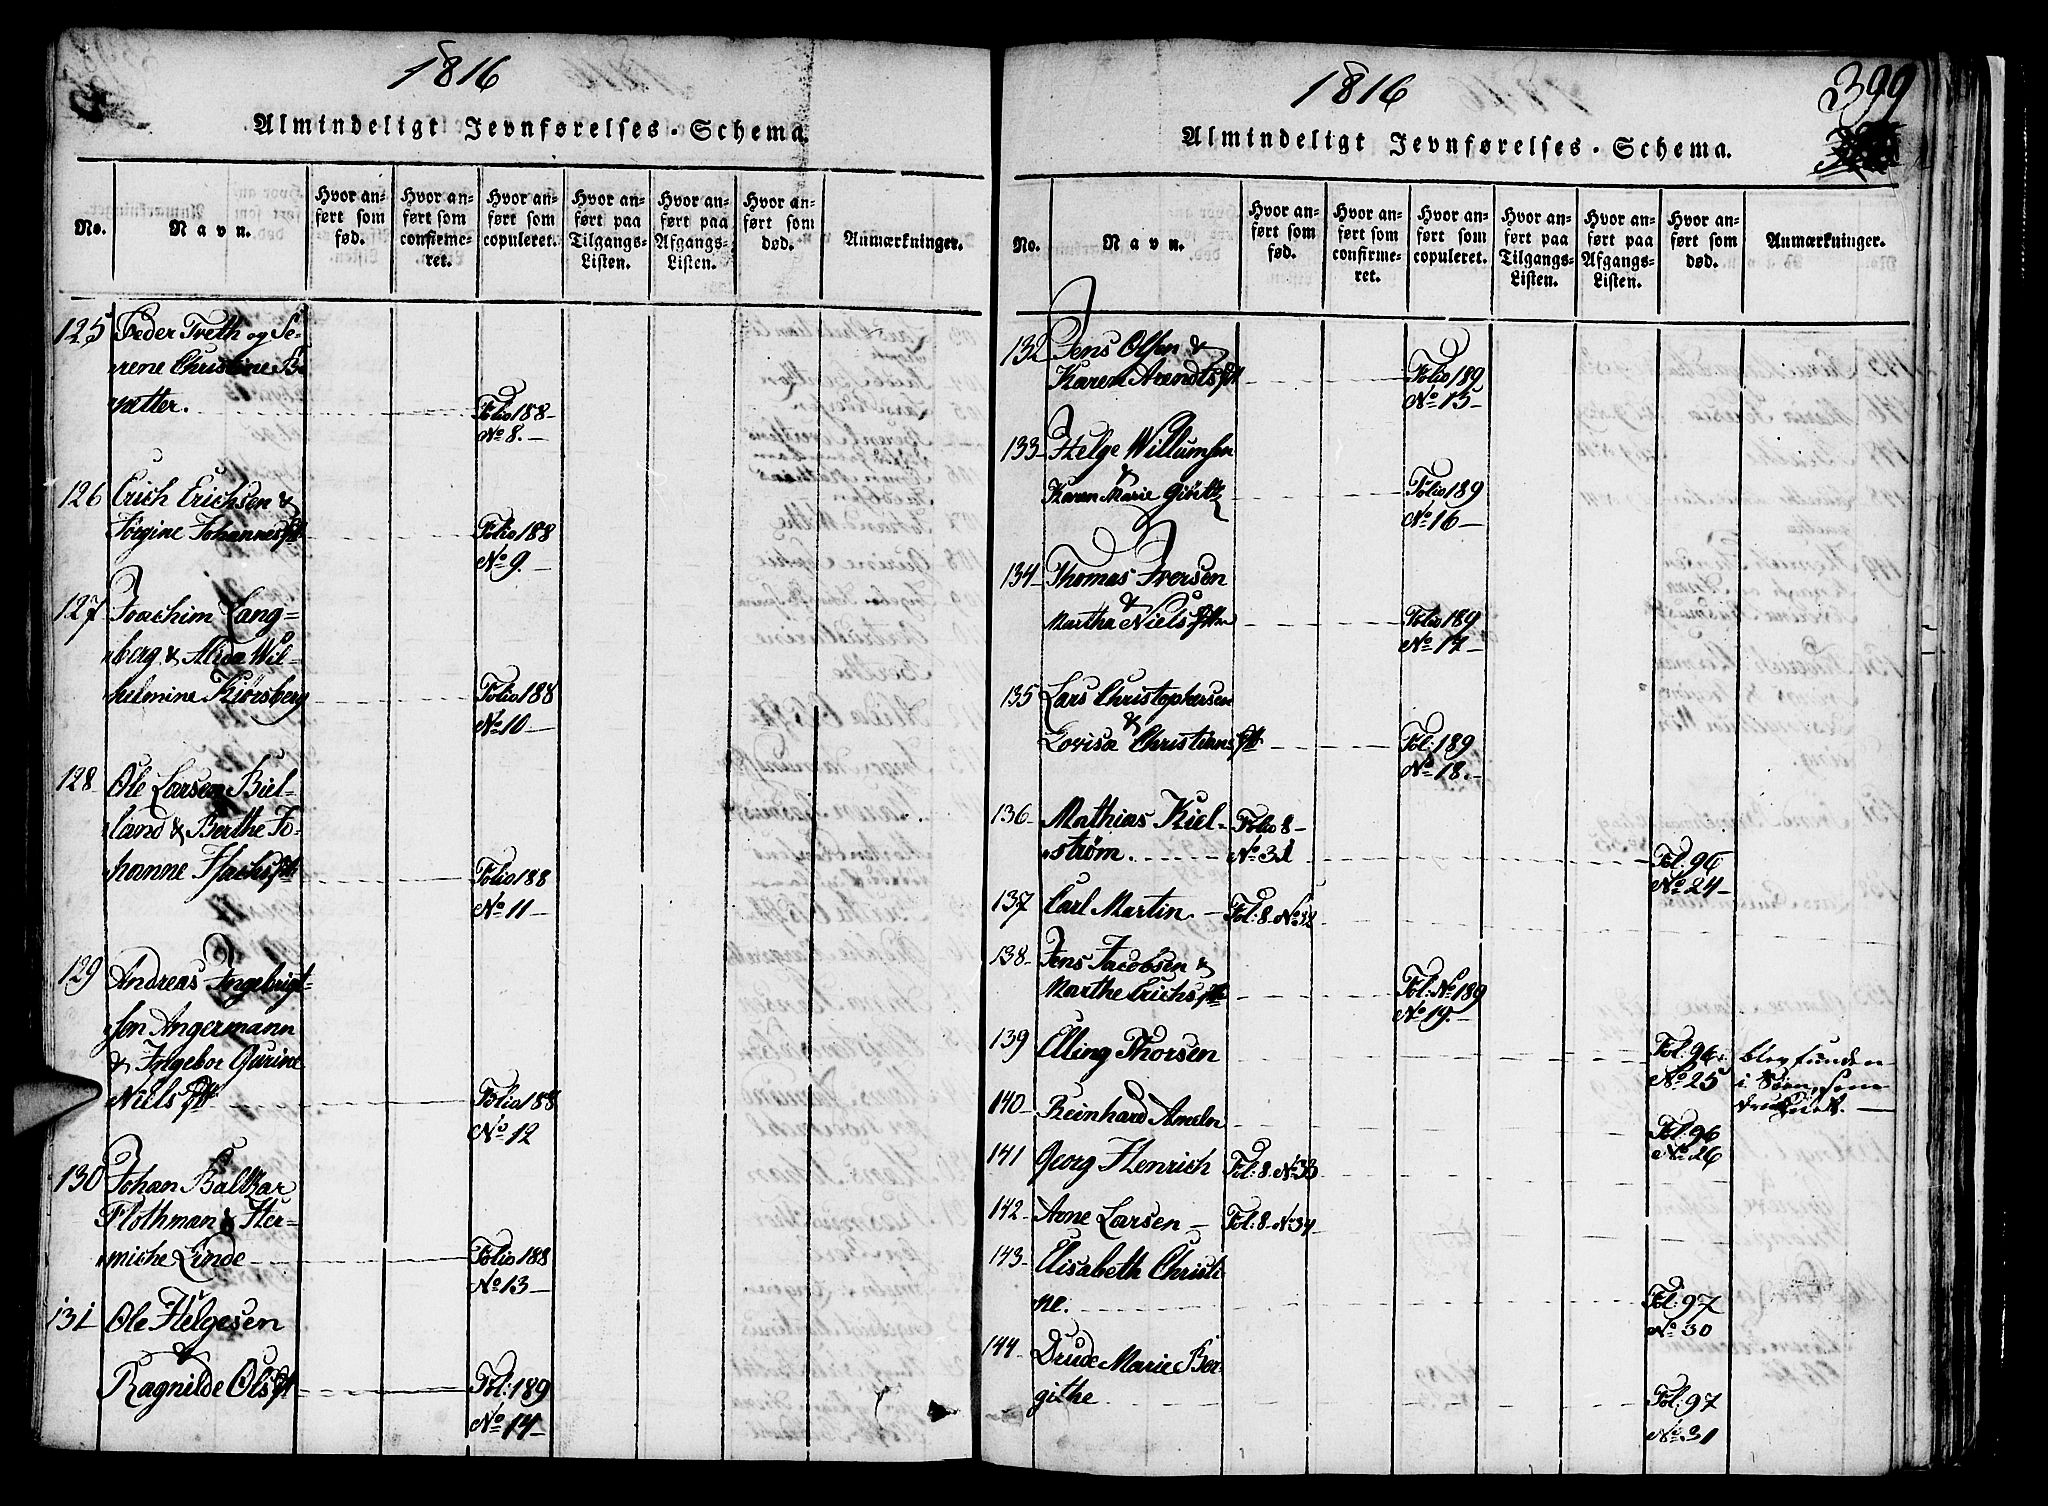 1816
Almindeligt Jevnførelses-Schema.
No.
Navn.
Hvor an-
ført som
fød.
Hvor an-
ført som
confirme-
ret.
Hvor an-
ført som
copuleret.
Hvor an-
ført paa
Tilgangs-
Listen.
Hvor an-
ført paa
Afgangs-
Listen.
Hvor an-
ført som
død.
Anmærkninger.
125 Peder Treth og Se-
rene Christine B.
vatter.
Folio 188-
No 8.-
126 Erich Erichsen &
Jørgine Johannes
Folio 188
No 9.
127 Joachim Lang-
berg & Alida Wil-
helmine Kiørsberg
Folio 188
No 10-
128 Ole Larsen Biel-
land & Berthe Jo-
hanne Isachs
Folio 188
No 11-
129 Andreas Ingebrigt-
sen Angermann
& Ingebor Gurine
Niels
Folio 188
No 12
130 Johan Baltzar
Flothman & Her-
miche Linde
Folio 188
No 13-
131 Ole Helgesen
&
Ragnilde Ols
Fol: 189
No 14-
1816
399
Almindeligt Jevnførelses-Schema.
No.
Navn.
Hvor an-
ført som
fød.
Hvor an-
ført som
confirme-
ret.
Hvor an-
ført som
copuleret.
Hvor an-
ført paa
Tilgangs-
Listen.
Hvor an-
ført paa
Afgangs-
Listen.
Hvor an-
ført som
død.
Anmærkninger.
132 Jens Olsen &
Karen Arendts
Folio 189
No 15-
133- Helge Willumsen
&
Karen Marie
Folio 189
No 16-
134- Thomas Iversen
&
Martha Niels
Folio 189
No 17-
135 Lars Christophersen
&
Lovise Christians
Fol: 189
No 18.-
136- Mathias Kiel-
strøm.
Folio 8-
No 31
Fol: 96
No 24-
137 Carl Martin - Fol: 8- No 32
138- Jens Jacobsen &
Marthe Erichs
Fol: No 189
No 19.-
139 Elling Thorsen
Fol: 96.
No 25
blev funden
i Søen, som
druknet.
140- Reinhard Ameln
Fol: 96
No 26
141 Georg Henrich Fol: 8. No 33
142- Arne Larsen - Fol: 8. No 34
143- Elisabeth Christi
ne.
Fol: 97
No 30
144- Drude Marie Ber-
githe
Fol: 97
No 31